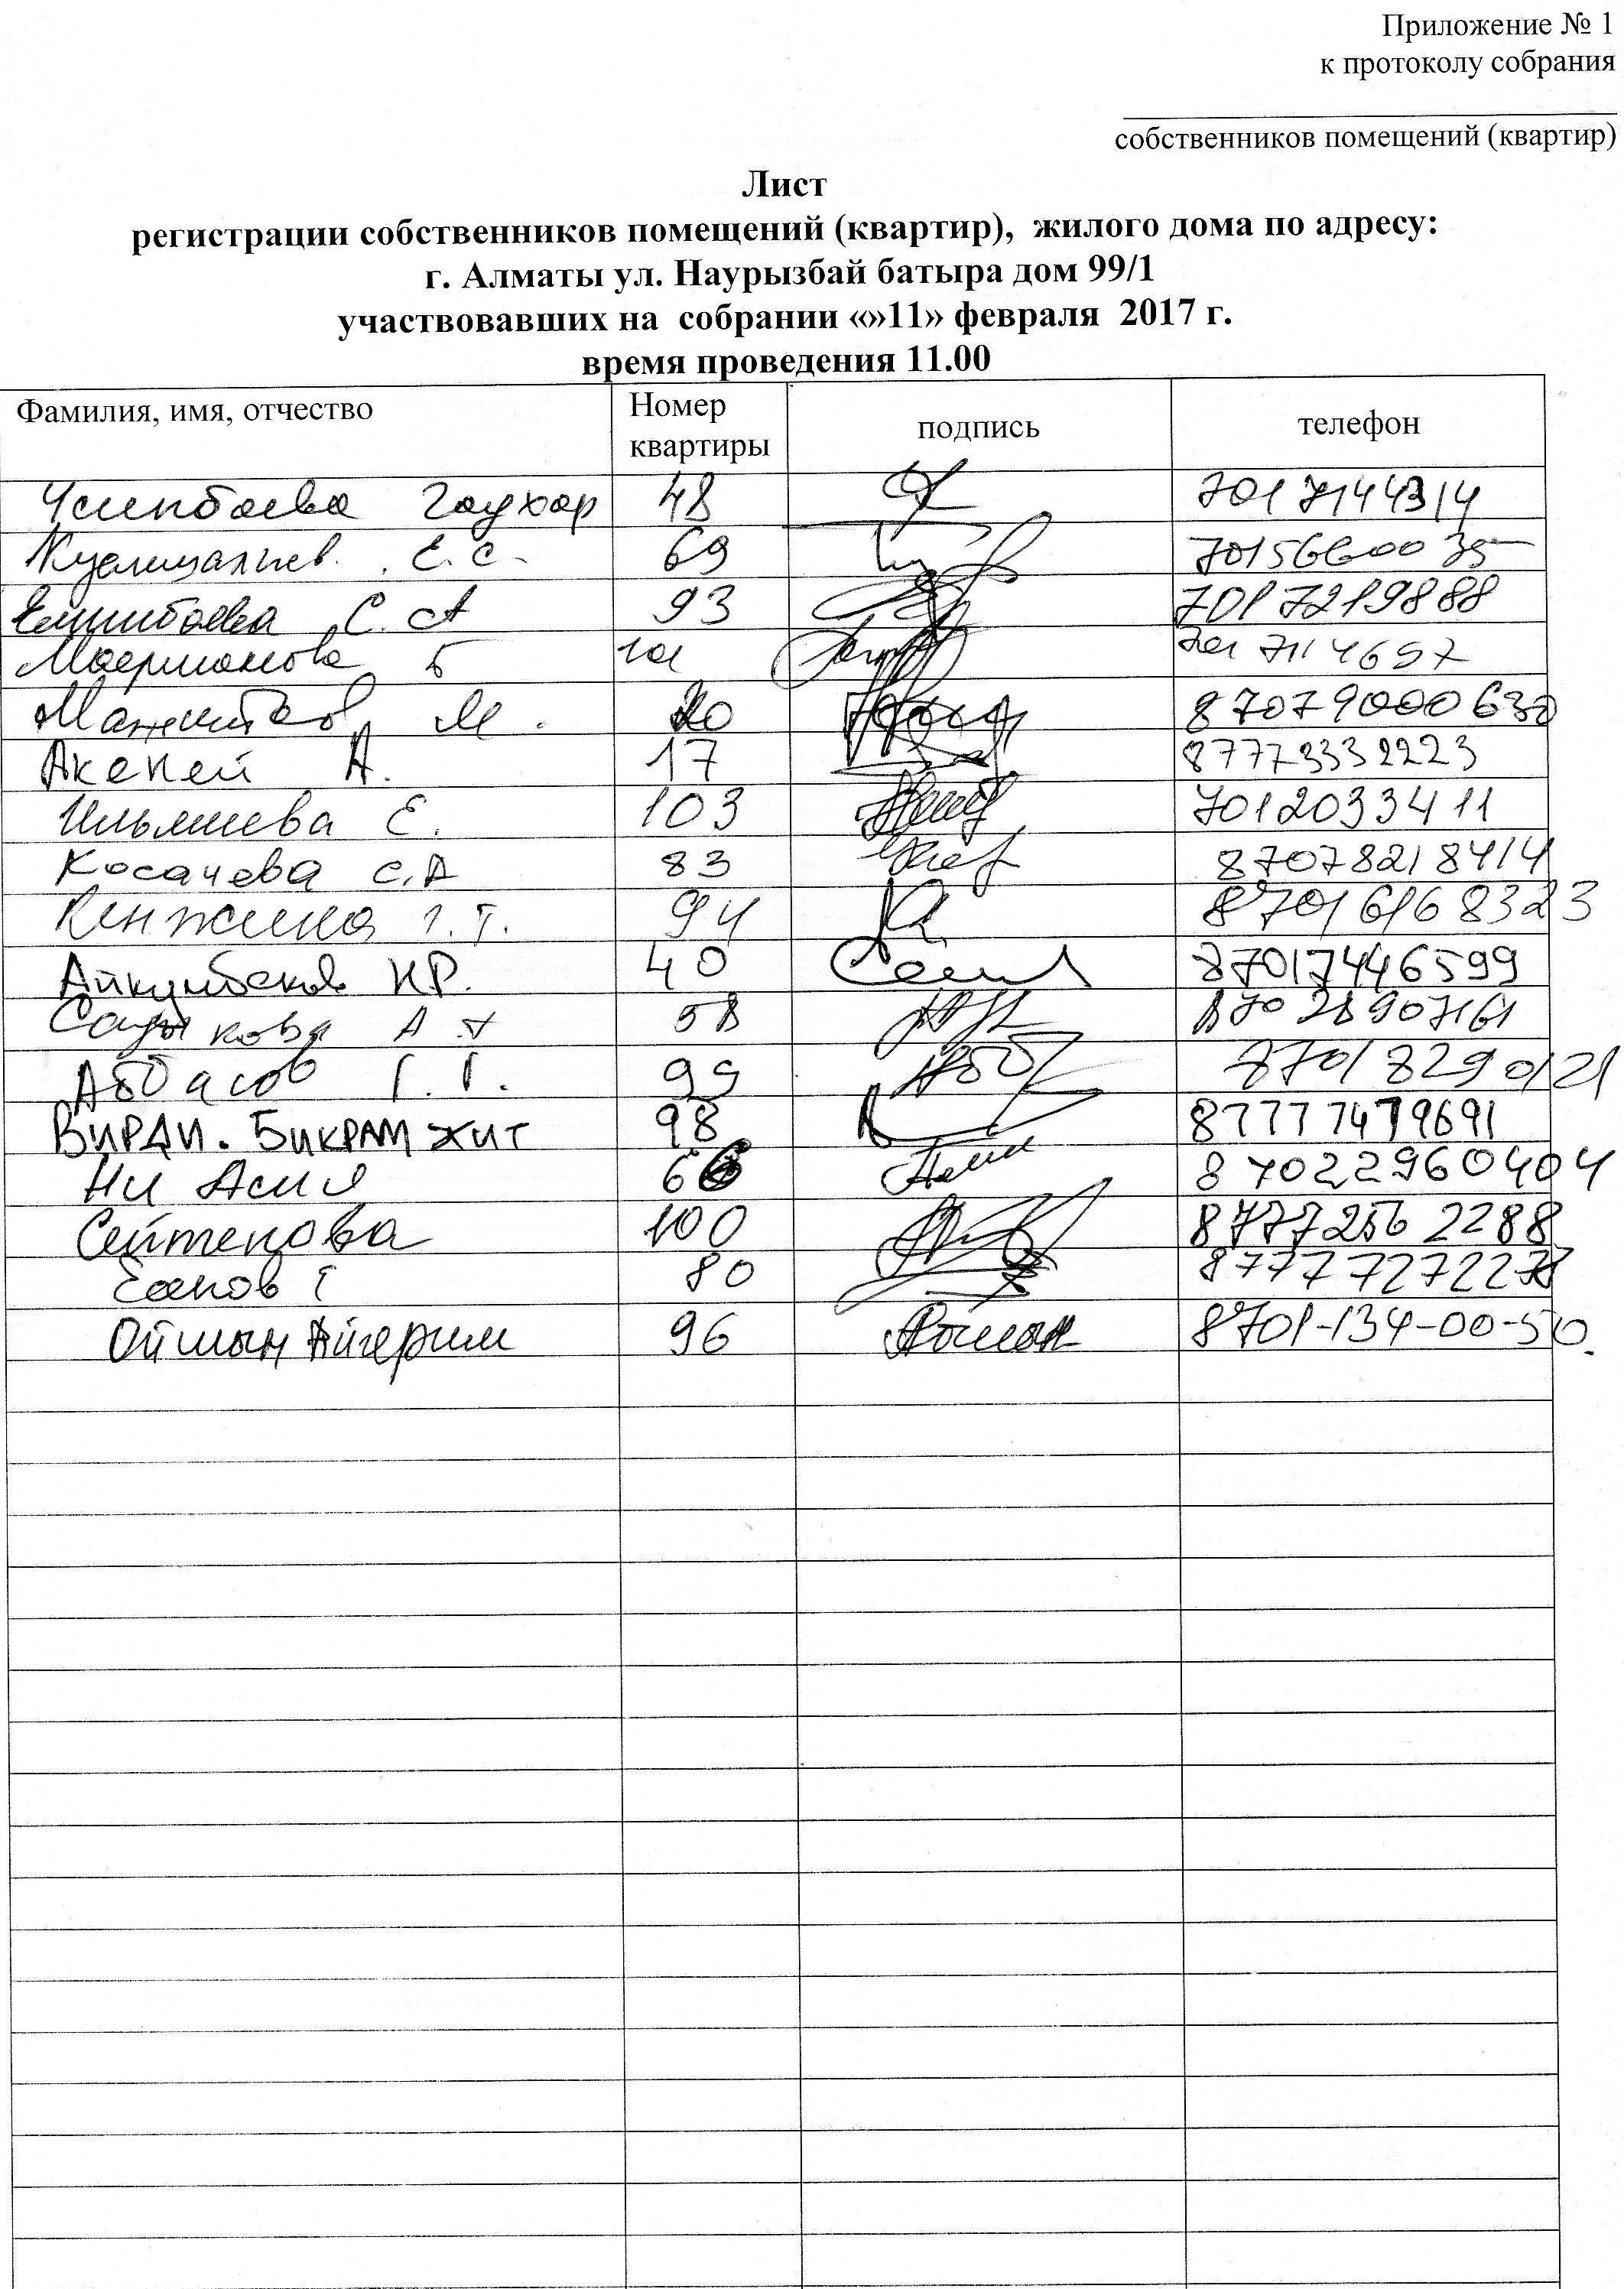 Приложение № 1
к протоколу собрания
собственников помещений (квартир)
Лист
регистрации собственников помещений (квартир), жилого дома по адресу:
г. Алматы ул. Наурызбай батыра дом 99/1
участвовавших на собрании «»11» февраля 2017 г.
время проведения 11.00
Фамилия, имя, отчество Номер квартиры подпись телефон
Гаухар 48 7017144314
Е.С. 69
С. А 93 7017219888
Б
М. 87079000630
Акепей А. 17 87773332223
Ильяшева Е. 103 7012033411
Косачева С.А 83 87078218414
Кенжина Г.Т. 94 87016168323
40 87017446599
А 58 87028907161
Аббасов Г.Г. 99 87018290121
ВИРДИ. БИКРАМ ЖИТ 98 87777479691
Ни Асия 66 87022960404
Сейтенова 100 87772562288
80
Ойшын Айгерим 96 8701-134-00-50.